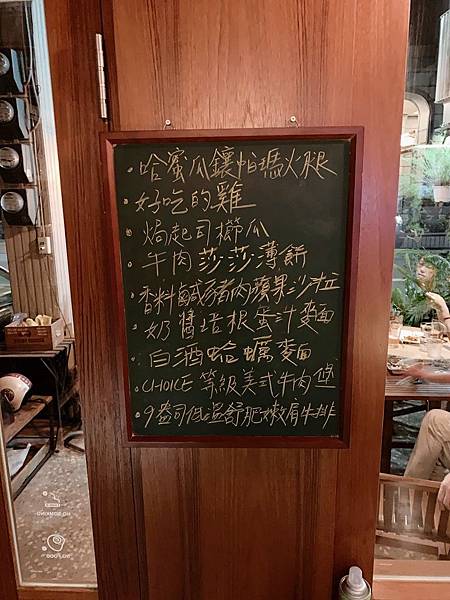 ·哈蜜瓜鑲帕瑪火腿
·好吃的雞
·焗起司櫛瓜
·牛肉莎莎薄餅
·香料鹹豬肉蘋果沙拉
·奶醬培根蛋汁麵
·白酒蛤蠣麵
·CHOICE等級美式牛肉堡
·9盎司低溫舒肥嫩肩牛排